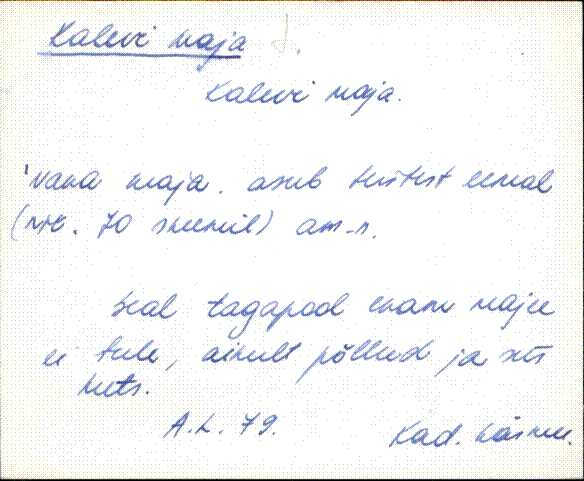 Kalevi maja
Kalevi maja.
'vana maja. asub teistest eemal
(nr. 70 skeemil) am-n.
Seal tagapool enam maju
ei tule, ainult põllud ja siis
mets.
A.L. 79.
Kad. Käsmu.